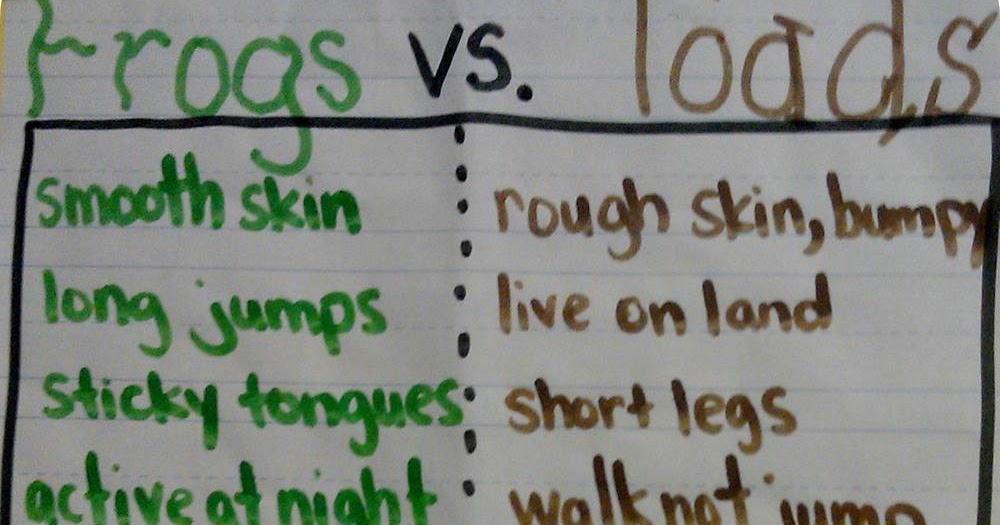 Frogs vs. Toads
smooth skin
rough skin, bumpy
long jumps
live on land
sticky tongues
short legs
active at night
walk not jump